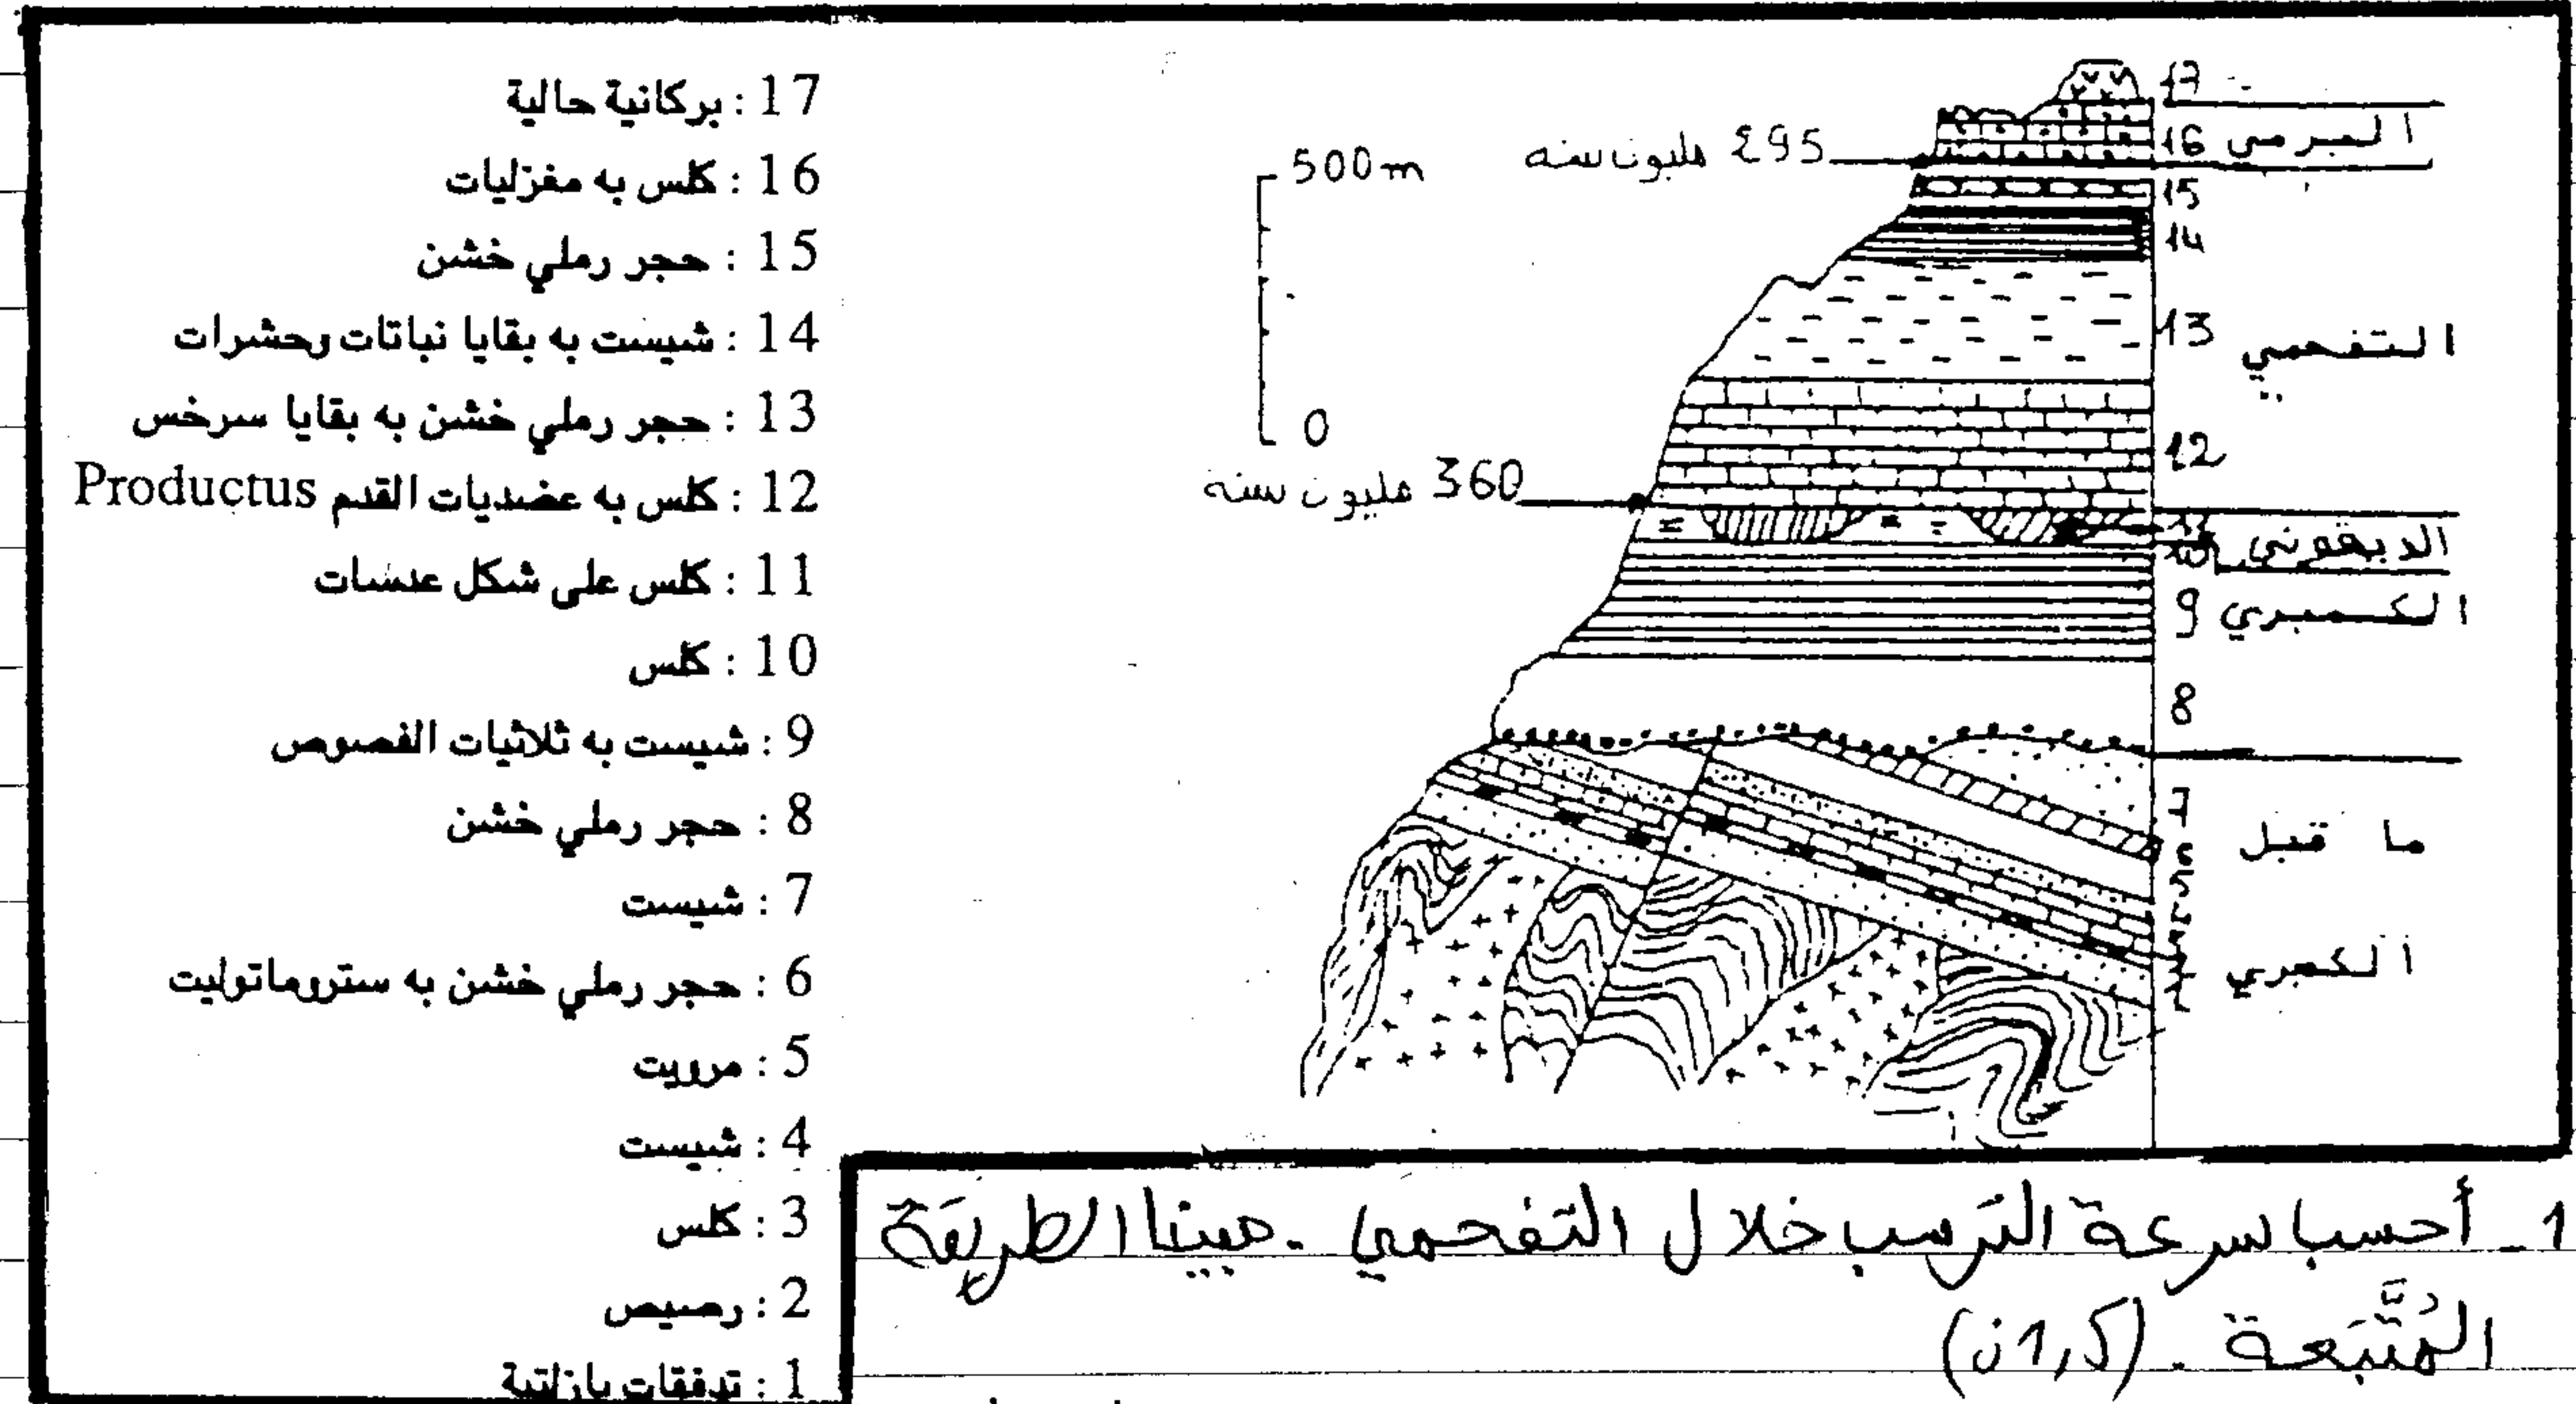 17 : بركانية حالية
16 : كلس به مغزليات
15 : حجر رملي خشن
14 : شيست به بقايا نباتات وحشرات
13 : حجر رملي خشن به بقايا سرخس
12 : كلس به عضديات القدم Productus
11 : كلس على شكل عدسات
10 : كلس
9 : شيست به ثلاثيات الفصوص
8 : حجر رملي خشن
7 : شيست
6 : حجر رملي خشن به ستروماتوليت
5 : مرويت
4 : شيست
3 : كلس
2 : رصيص
1 : تدفقات بازلتية
500m
0
295 مليون سنه
360 مليون سنه
17
16 البرمي
15
14
13 التفحمي
12
11
10 الديفوني
9 الكمبري
8
7
6
5
ما قبل
الكمبري
1 _ أحسب سرعة الترسب خلال التفحمي . مبينا الطريقة
المُتَّبَعة . (1,5 ن)